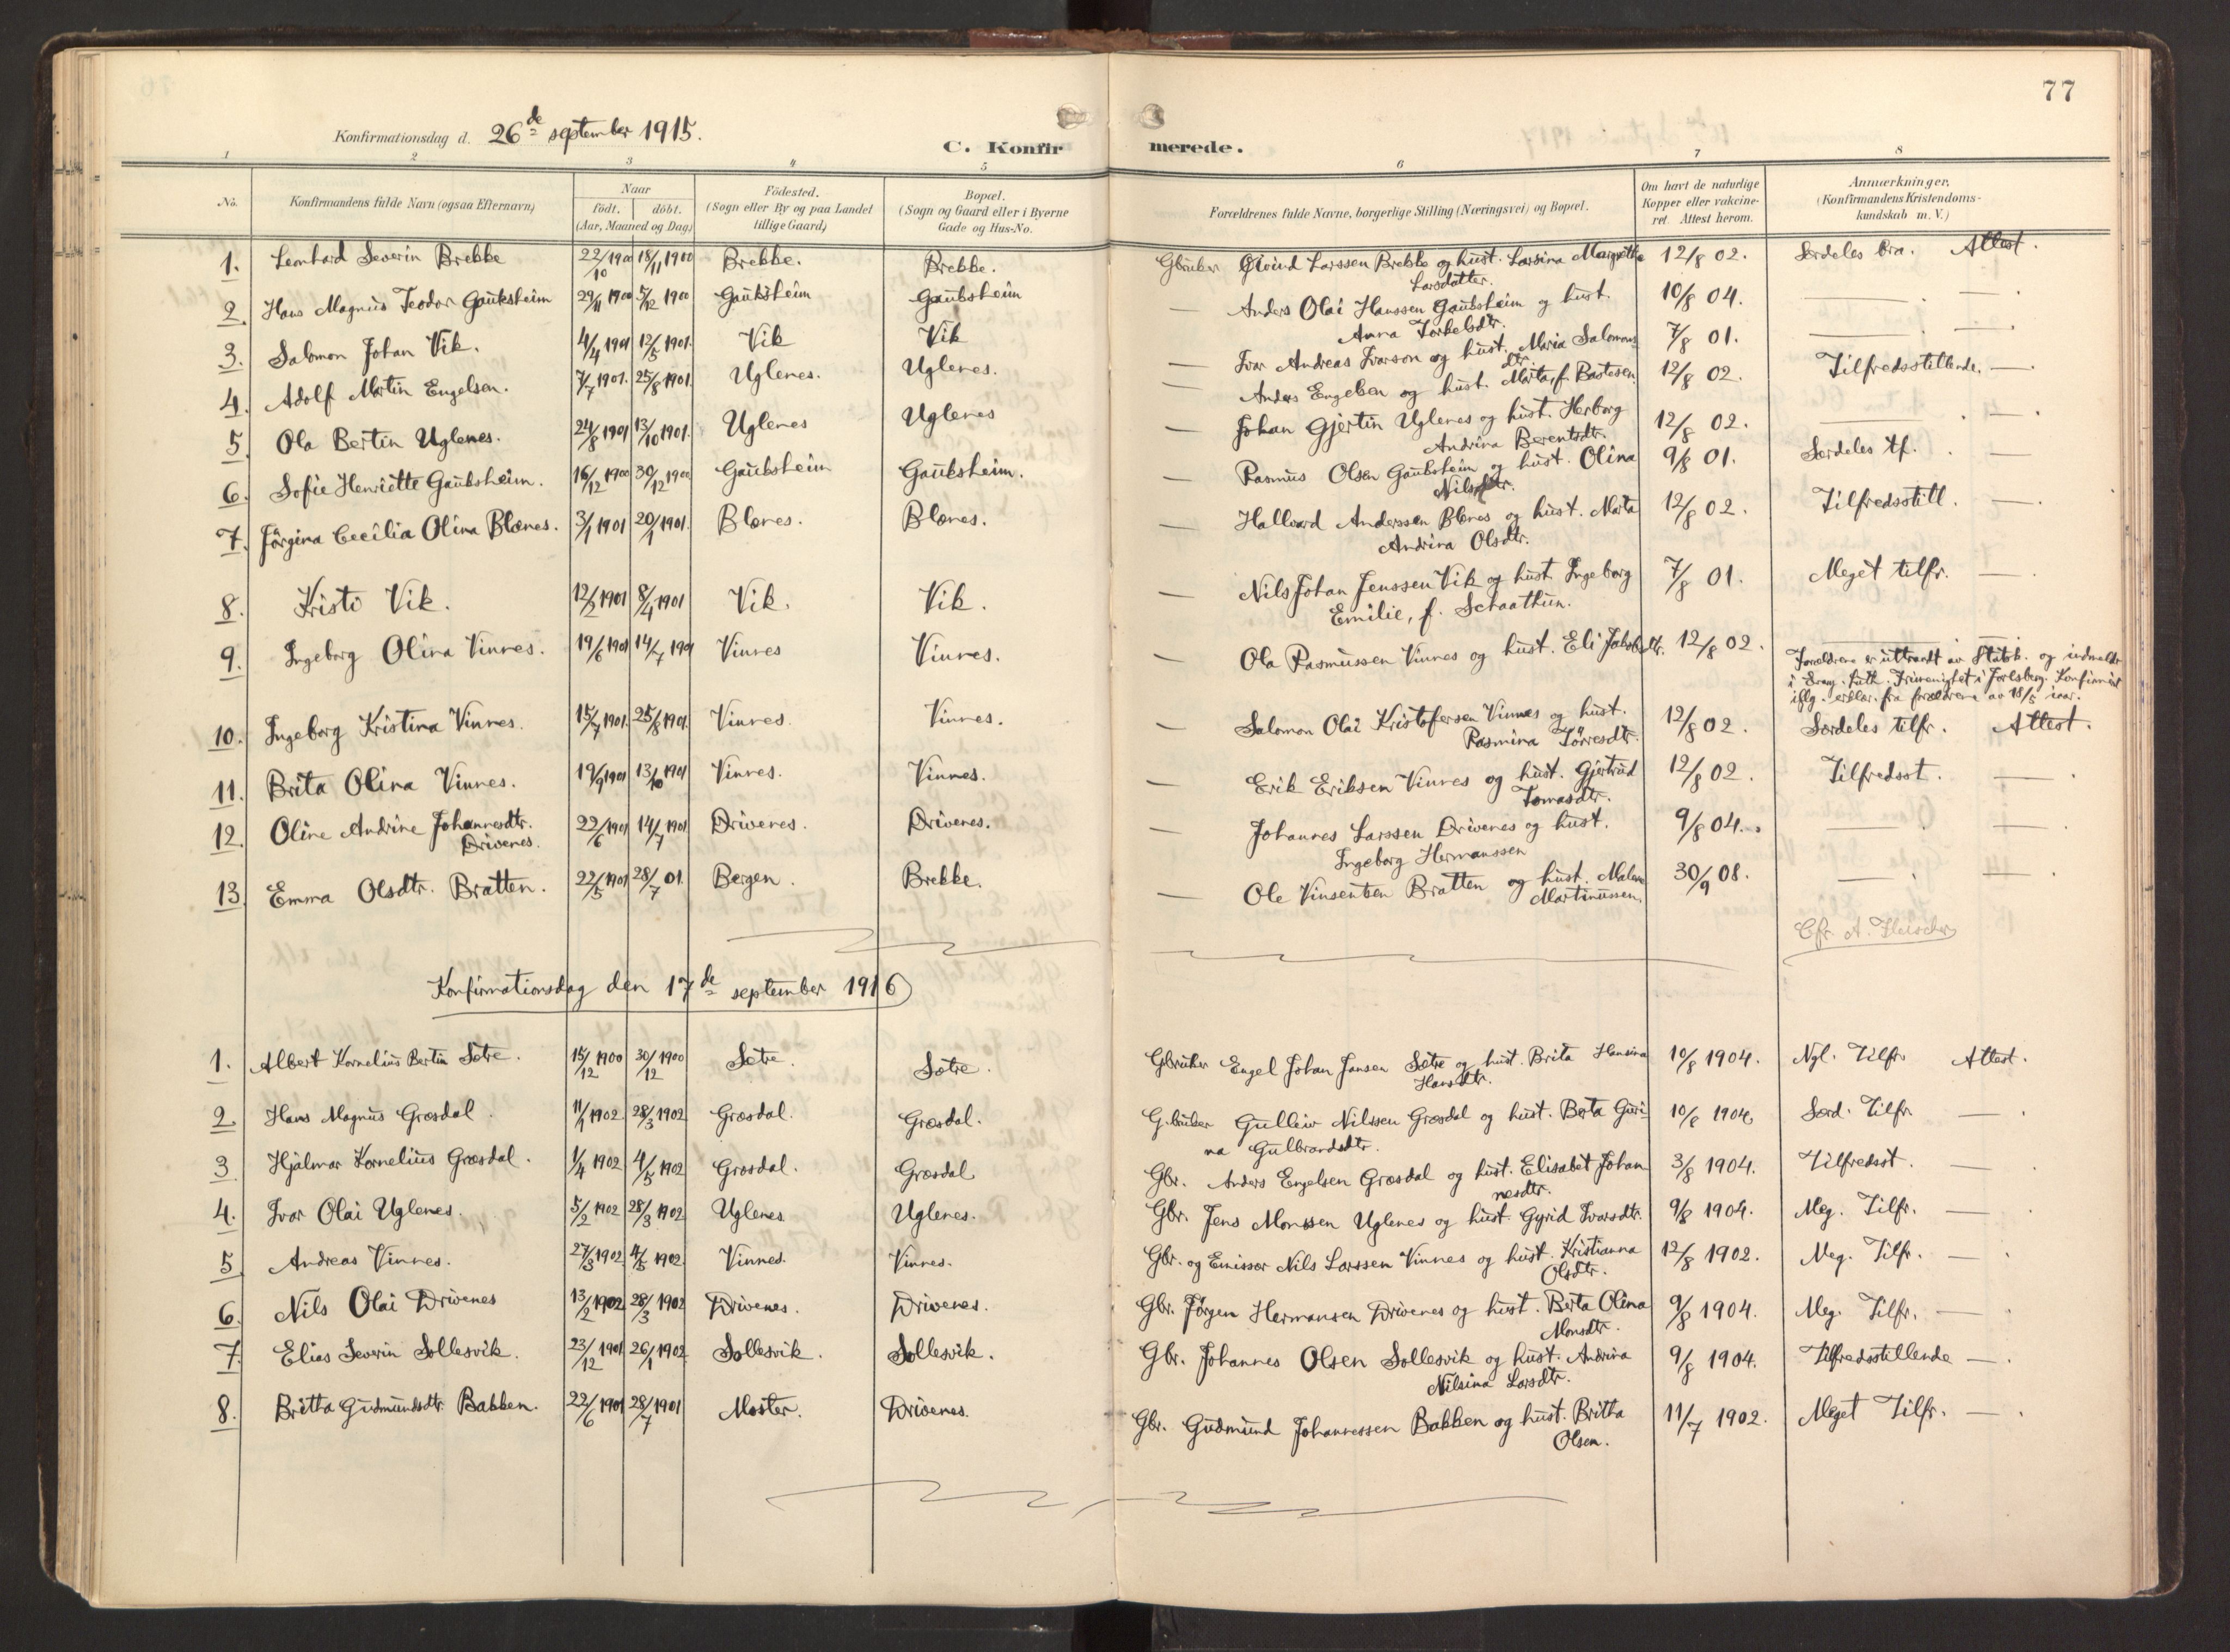 77
Konfirmationsdag d. 26de september 1915.
C. Konfirmerede.
1 2 3 4 5 6 7 8
No. Konfirmandens fulde Navn (ogsaa Efternavn) Naar födt. döbt. (Aar, Maaned og Dag) Födested. (Sogn eller By og paa Landet tillige Gaard) Bopæl. (Sogn og Gaard eller i Byerne Gade og Hus-No. Forældrenes fulde Navne, borgerlige Stilling (Næringsvei) og Bopæl. Om havt de naturlige Kopper eller vakcineret. Attest herom. Anmerkninger. (Konfirmandens Kristendomskundskab m. V.)
1. Leonhard Severin Brekke 22/10 1900 18/11 1900 Brekke. Brekke. Gbruker Øivind Larssen Brekke og hust. Larsina Margrethe 12/8 02. Særdeles bra. Attest.
Larsdatter.
2. Hans Magnus Teodor Gauksheim 29/11 1900 5/12 1900 Gauksheim Gauksheim — Anders Olai Hanssen Gauksheim og hust. 10/8 04. — . — .
Anna Torkelsdtr.
3. Salomon Johan Vik. 4/4 1901 12/5 1901. Vik Vik — Ivar Andreas Ivarson og hust. Maria Salomons 7/8 01. — . — .
dtr.
4. Adolf Martin Engelsen. 7/7 1901. 25/8 1901. Uglenes. Uglenes. — Anders Engelsen og hust. Marta, f. Bastesen 12/8 02. Tilfredsstillende. — .
5. Ola Bertin Uglenes. 24/8 1901 13/10 1901. Uglenes Uglenes — Johan Gjertin Uglenes og hust. Herborg 12/8 02. — . — .
Andrina Berentsdtr.
6. Sofie Henriette Gauksheim. 16/12 1900 30/12 1900 Gauksheim Gauksheim. — Rasmus Olsen Gauksheim og hust. Olina 9/8 01. Særdeles tf. . —
Nilsdtr.
7. Jörgina Cecilia Olina Blænes. 3/1 1901 20/1 1901. Blænes. Blænes. — Hallvard Anderssen Blænes og hust. Marta 12/8 02. Tilfredsstill. — .
Andrina Olsdtr.
8. Kristi Vik. 12/2 1901 8/4 1901 Vik. Vik. — Nils Johan Jenssen Vik og hust. Ingeborg 7/8 01. Meget tilfr. — .
Emilie, f. Schaathun.
9. Ingeborg Olina Vinnes. 19/6 1901 14/7 1901 Vinnes Vinnes. — Ola Rasmussen Vinnes og hust. Eli Jakobsdtr. 12/8 02. — — .
Forældrene er uttraadt av Statsk. og indmeldt
i Evang. Luth. Frimenighet i Jarlsberg. Konfirmert
iflg. erklær. fra forældrene av 18/5 iaar.
10. Ingeborg Kristina Vinnes. 15/7 1901. 25/8 1901. Vinnes. Vinnes. — Salomon Olai Kristofersen Vinnes og hust. 12/8 02. Særdeles tilfr. Attest.
Rasmina Törresdtr.
11. Brita Olina Vinnes. 19/9 1901 13/10 1901 Vinnes. Vinnes. — Erik Eriksen Vinnes og hust. Gjertrud 12/8 02. Tilfredsst. — .
Tomasdtr.
12. Oline Andrine Johannesdtr. 22/6 1901 14/7 1901 Drivenes. Drivenes. — Johannes Larssen Drivenes og hust. 9/8 04. — . — .
Drivenes. Ingeborg Hermanssen
13. Emma Olsdtr. Bratten. 22/5 1901 28/7 01. Bergen. Brekke. — Ole Vinsentsen Bratten og hust. Malene 30/9 08. — . — .
Martinussen.
Cfr. A. Fleischer
Konfirmationsdag den 17de september 1916
1. Albert Kornelius Bertin Sætre. 15/12 1900 30/12 1900 Sætre. Sætre. Gbruker Engel Johan Jansen Sætre og hust. Brita Hansina 10/8 1904. Ngl. Tilfr. Attest.
Hansdtr.
2. Hans Magnus Græsdal. 11/1 1902. 28/3 1902. Græsdal. Græsdal. G.bruker Gulleiv Nilssen Græsdal og hust. Berta Guri- 10/8 1904 Særd. Tilfr. — .
na Gulbrandsdtr.
3 Hjalmar Kornelius Græsdal. 1/4 1902 4/5 1902 Græsdal. Græsdal Gbr. Anders Engelsen Græsdal og hust. Elisabet Johan 3/8 1904. Tilfredsst. — .
nesdtr.
4. Ivar Olai Uglenes. 5/2 1902 28/3 1902 Uglenes Uglenes. Gbr. Jens Monssen Uglenes og hust. Gyrid Ivarsdtr. 9/8 1904. Meg. Tilfr. — .
5 Andreas Vinnes. 27/3 1902 4/5 1902 Vinnes. Vinnes. Gbr. og Emissær Nils Larssen Vinnes og hust. Kristianna 12/8 1902. Meg. Tilfr. — .
Olsdtr.
6. Nils Olai Drivenes 13/2 1902 28/3 1902 Drivenes. Drivenes. Gbr. Jørgen Hermansen Drivenes og hust. Berta Olina 9/8 1904. Meg. Tilfr. — .
Monsdtr.
7. Elias Severin Sollesvik. 23/12 1901 26/1 1902 Sollesvik. Sollesvik. Gbr. Johannes Olsen Sollesvik og hust. Andrina 9/8 1904. Tilfredsstillende — .
Nilsina Larsdtr.
8. Britta Gudmundsdtr. Bakken. 22/6 1901 28/7 1901 Moster. Drivenes. Gbr. Gudmund Johannessen Bakken og hust. Britta 11/7 1902. Meget Tilfr. — .
Olsen.